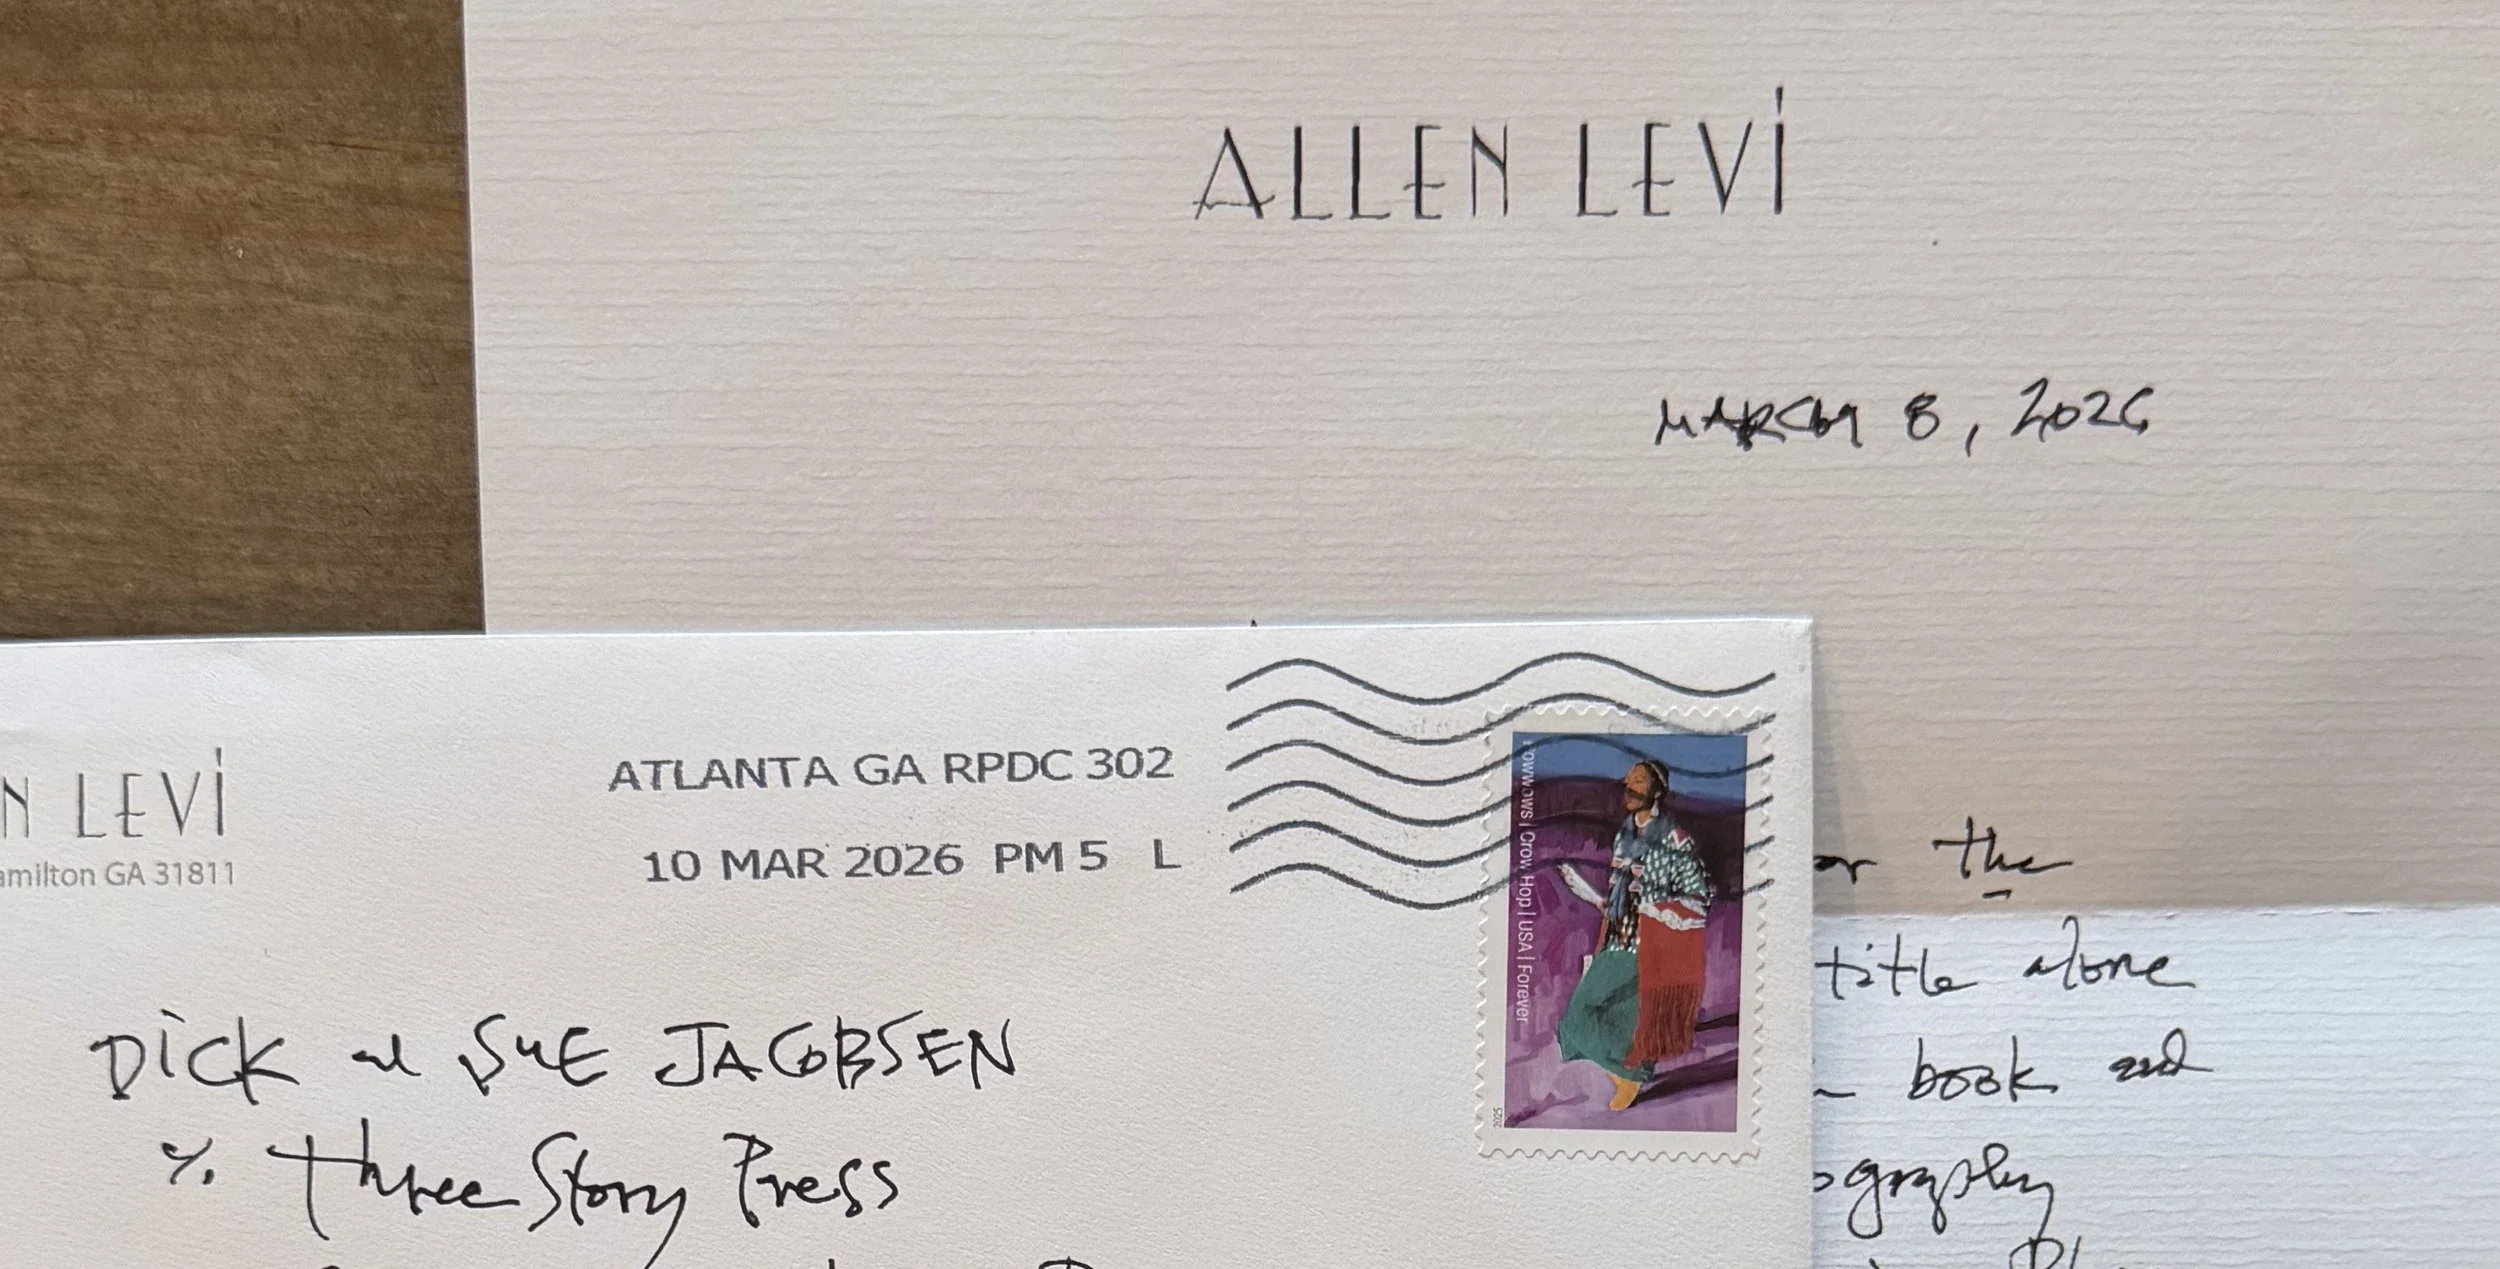 ALLEN LEVI
MARCH 8, 2026
N LEVI
amilton GA 31811
ATLANTA GA RPDC 302
10 MAR 2026 PM 5 L
Powwows | Crow Hop | USA | Forever
2025
DICK and SUE JACOBSEN
% Three Story Press
or the
title alone
book and
ography